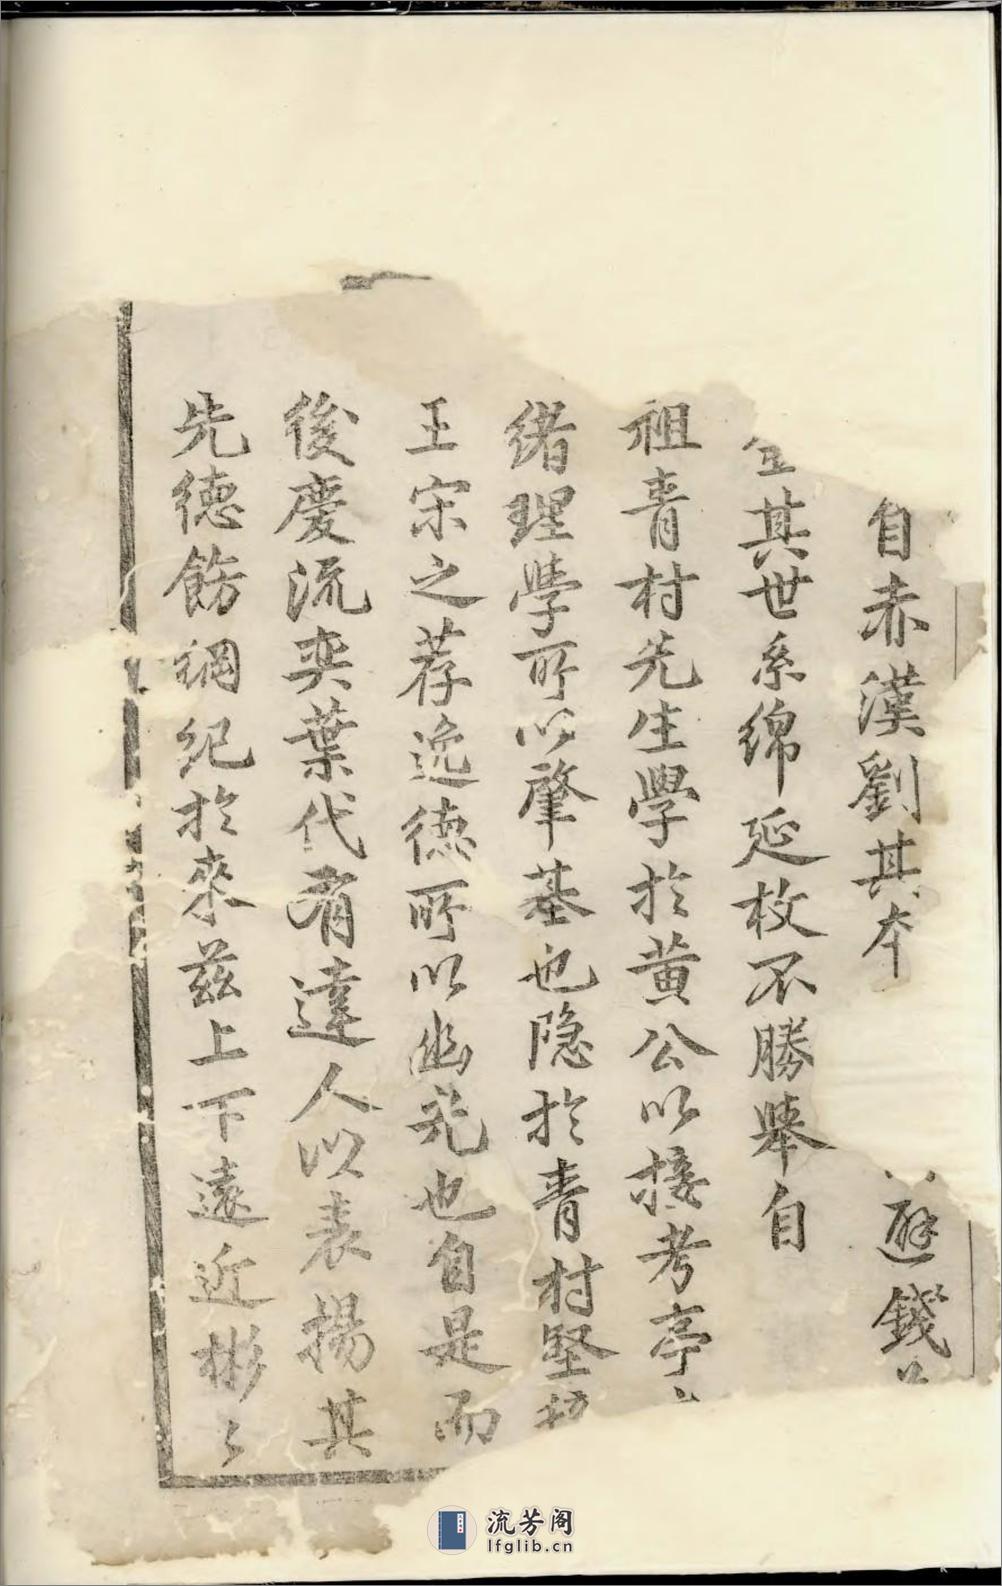 自赤漢劉其本
避錢
其世系綿延枚不勝舉自
祖青村先生學於黄公以接考亭
緒理學所以肇基也隐於青村堅
王宋之荐逸德所以幽光也自是而
後慶流奕葉代有達人以表揚其
先德飭綱紀於來兹上下遠近彬〻
流芳阁
lfglib.cn